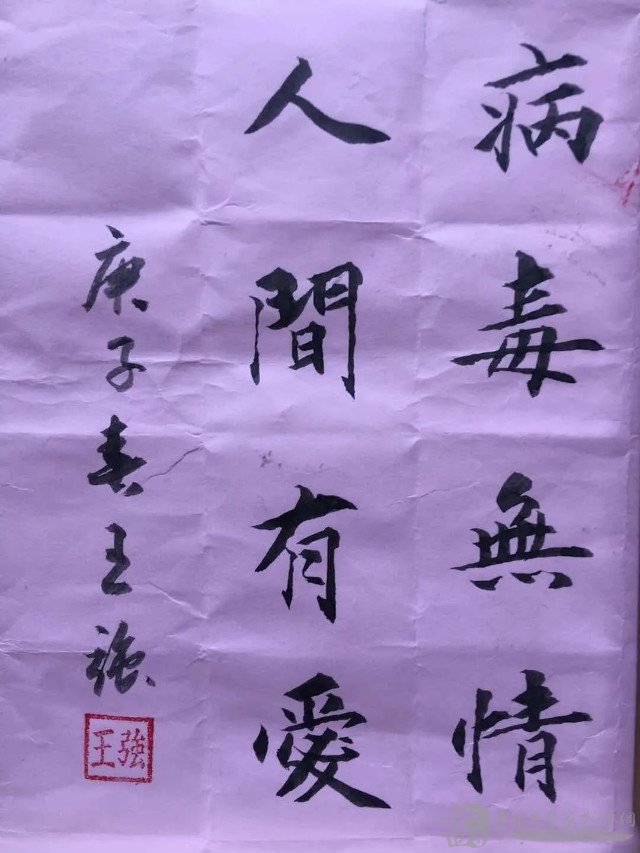 病毒無情
人間有愛
庚子春王強
王強